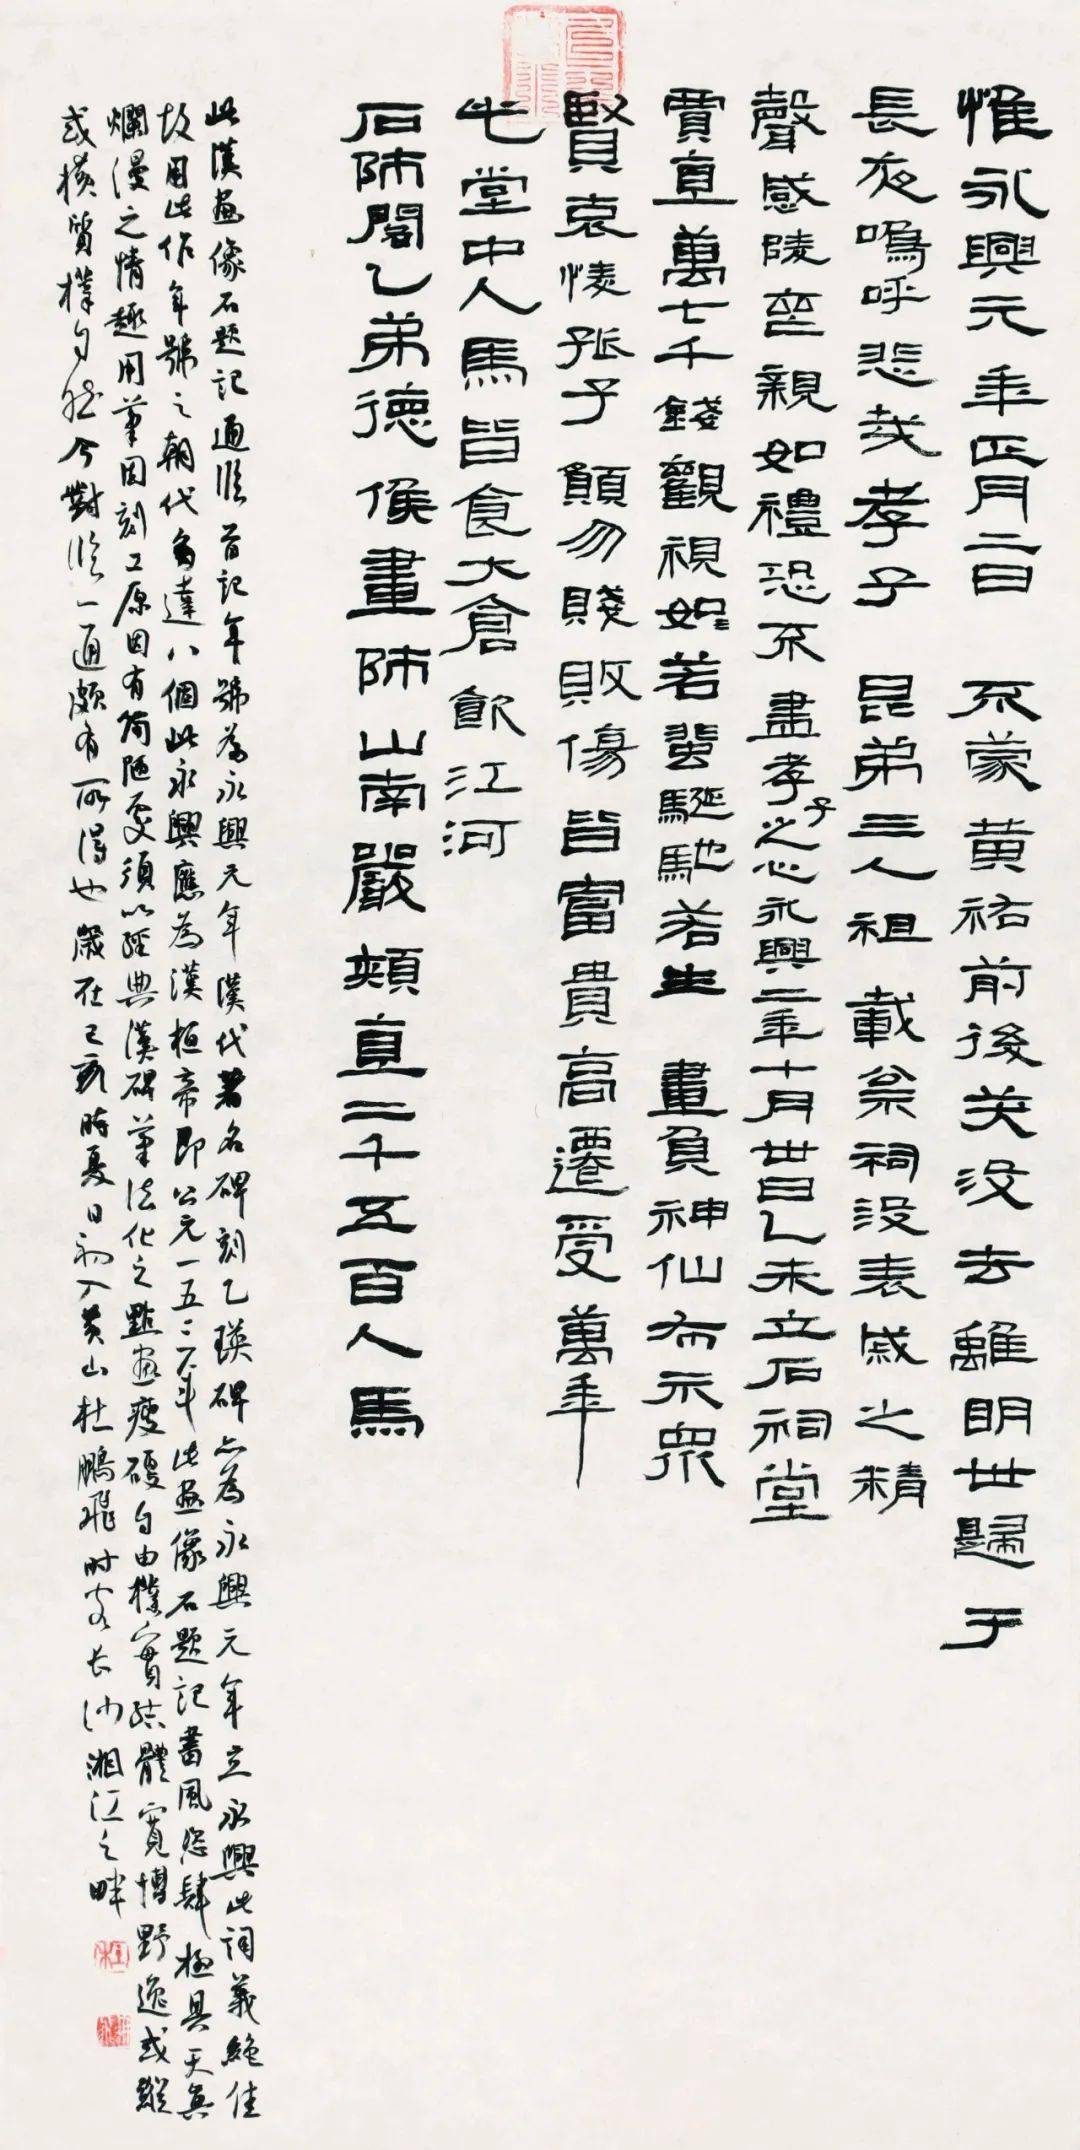 惟永興元年正月二日 不蒙黄祐前後英没去離明世歸于
長夜嗚呼悲哉孝子 昆弟三人祖載翁祠没表感之精
聲感陵 親如禮恐不盡孝子之心永興二年十月卅日乙未立石祠堂
賈直萬七千錢觀視如若蜚駞馳若生 畫負神仙布示衆
賢哀悽孤子願勿賤敗傷皆富貴高遷受萬年
此堂中人馬皆食大倉飲江河
石師閻乙弟德侯畫師山南嚴頰直二千五百人馬
此漢畫像石題記通臨首記年號為永興元年漢代著名碑刻乙瑛碑亦為永興元年立永興此詞義絶佳
故用此作年號之朝代多達八個此永興應為漢桓帝即公元一五三年此畫像石題記書風恣肆極具天真
爛漫之情趣用筆因刻工原因有簡陋處須以經典漢碑筆法化之點畫瘦硬自由樸實結體寬博野逸或縱
或横質樸自然今對臨一通頗有所得也歲在己亥時夏日初入黄山杜鵬飛时客长沙湘江之畔